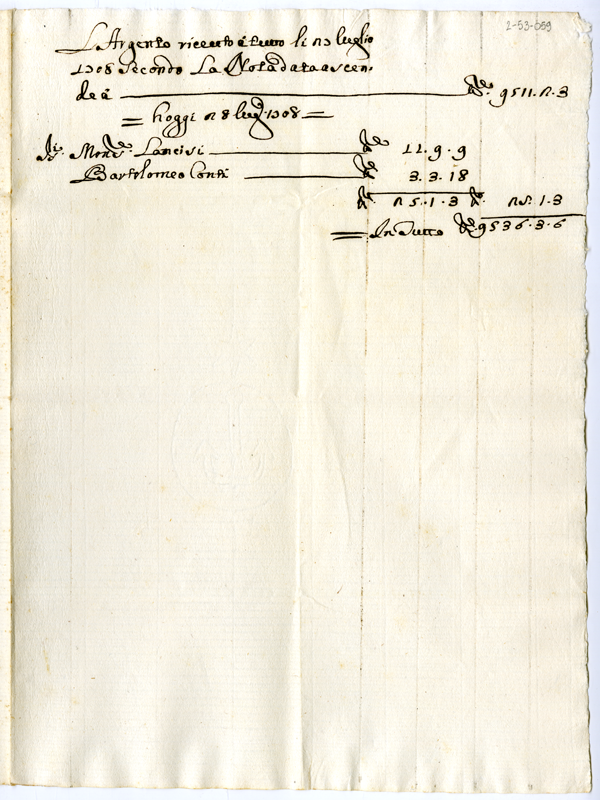 L'Argento riceuto à tutto li 27 luglio
1708 Secondo La Nota data ascen-
de à 9511.2.3
= hoggi 28 lug.o 1708 =
Mons.r Lancisi 21.9.9
Bartolomeo Conti 3.3.18
25.1.3 25.1.3
= In Tutto 9536.3.6
2-53-059